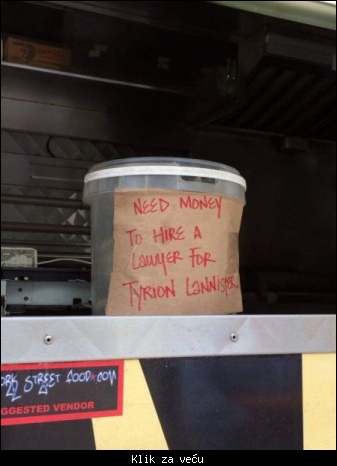 NEED MONEY
TO HIRE A
LAWYER FOR
TYRION LANNISTER
STREET FOOD★COM
SUGGESTED VENDOR
Klik za veću